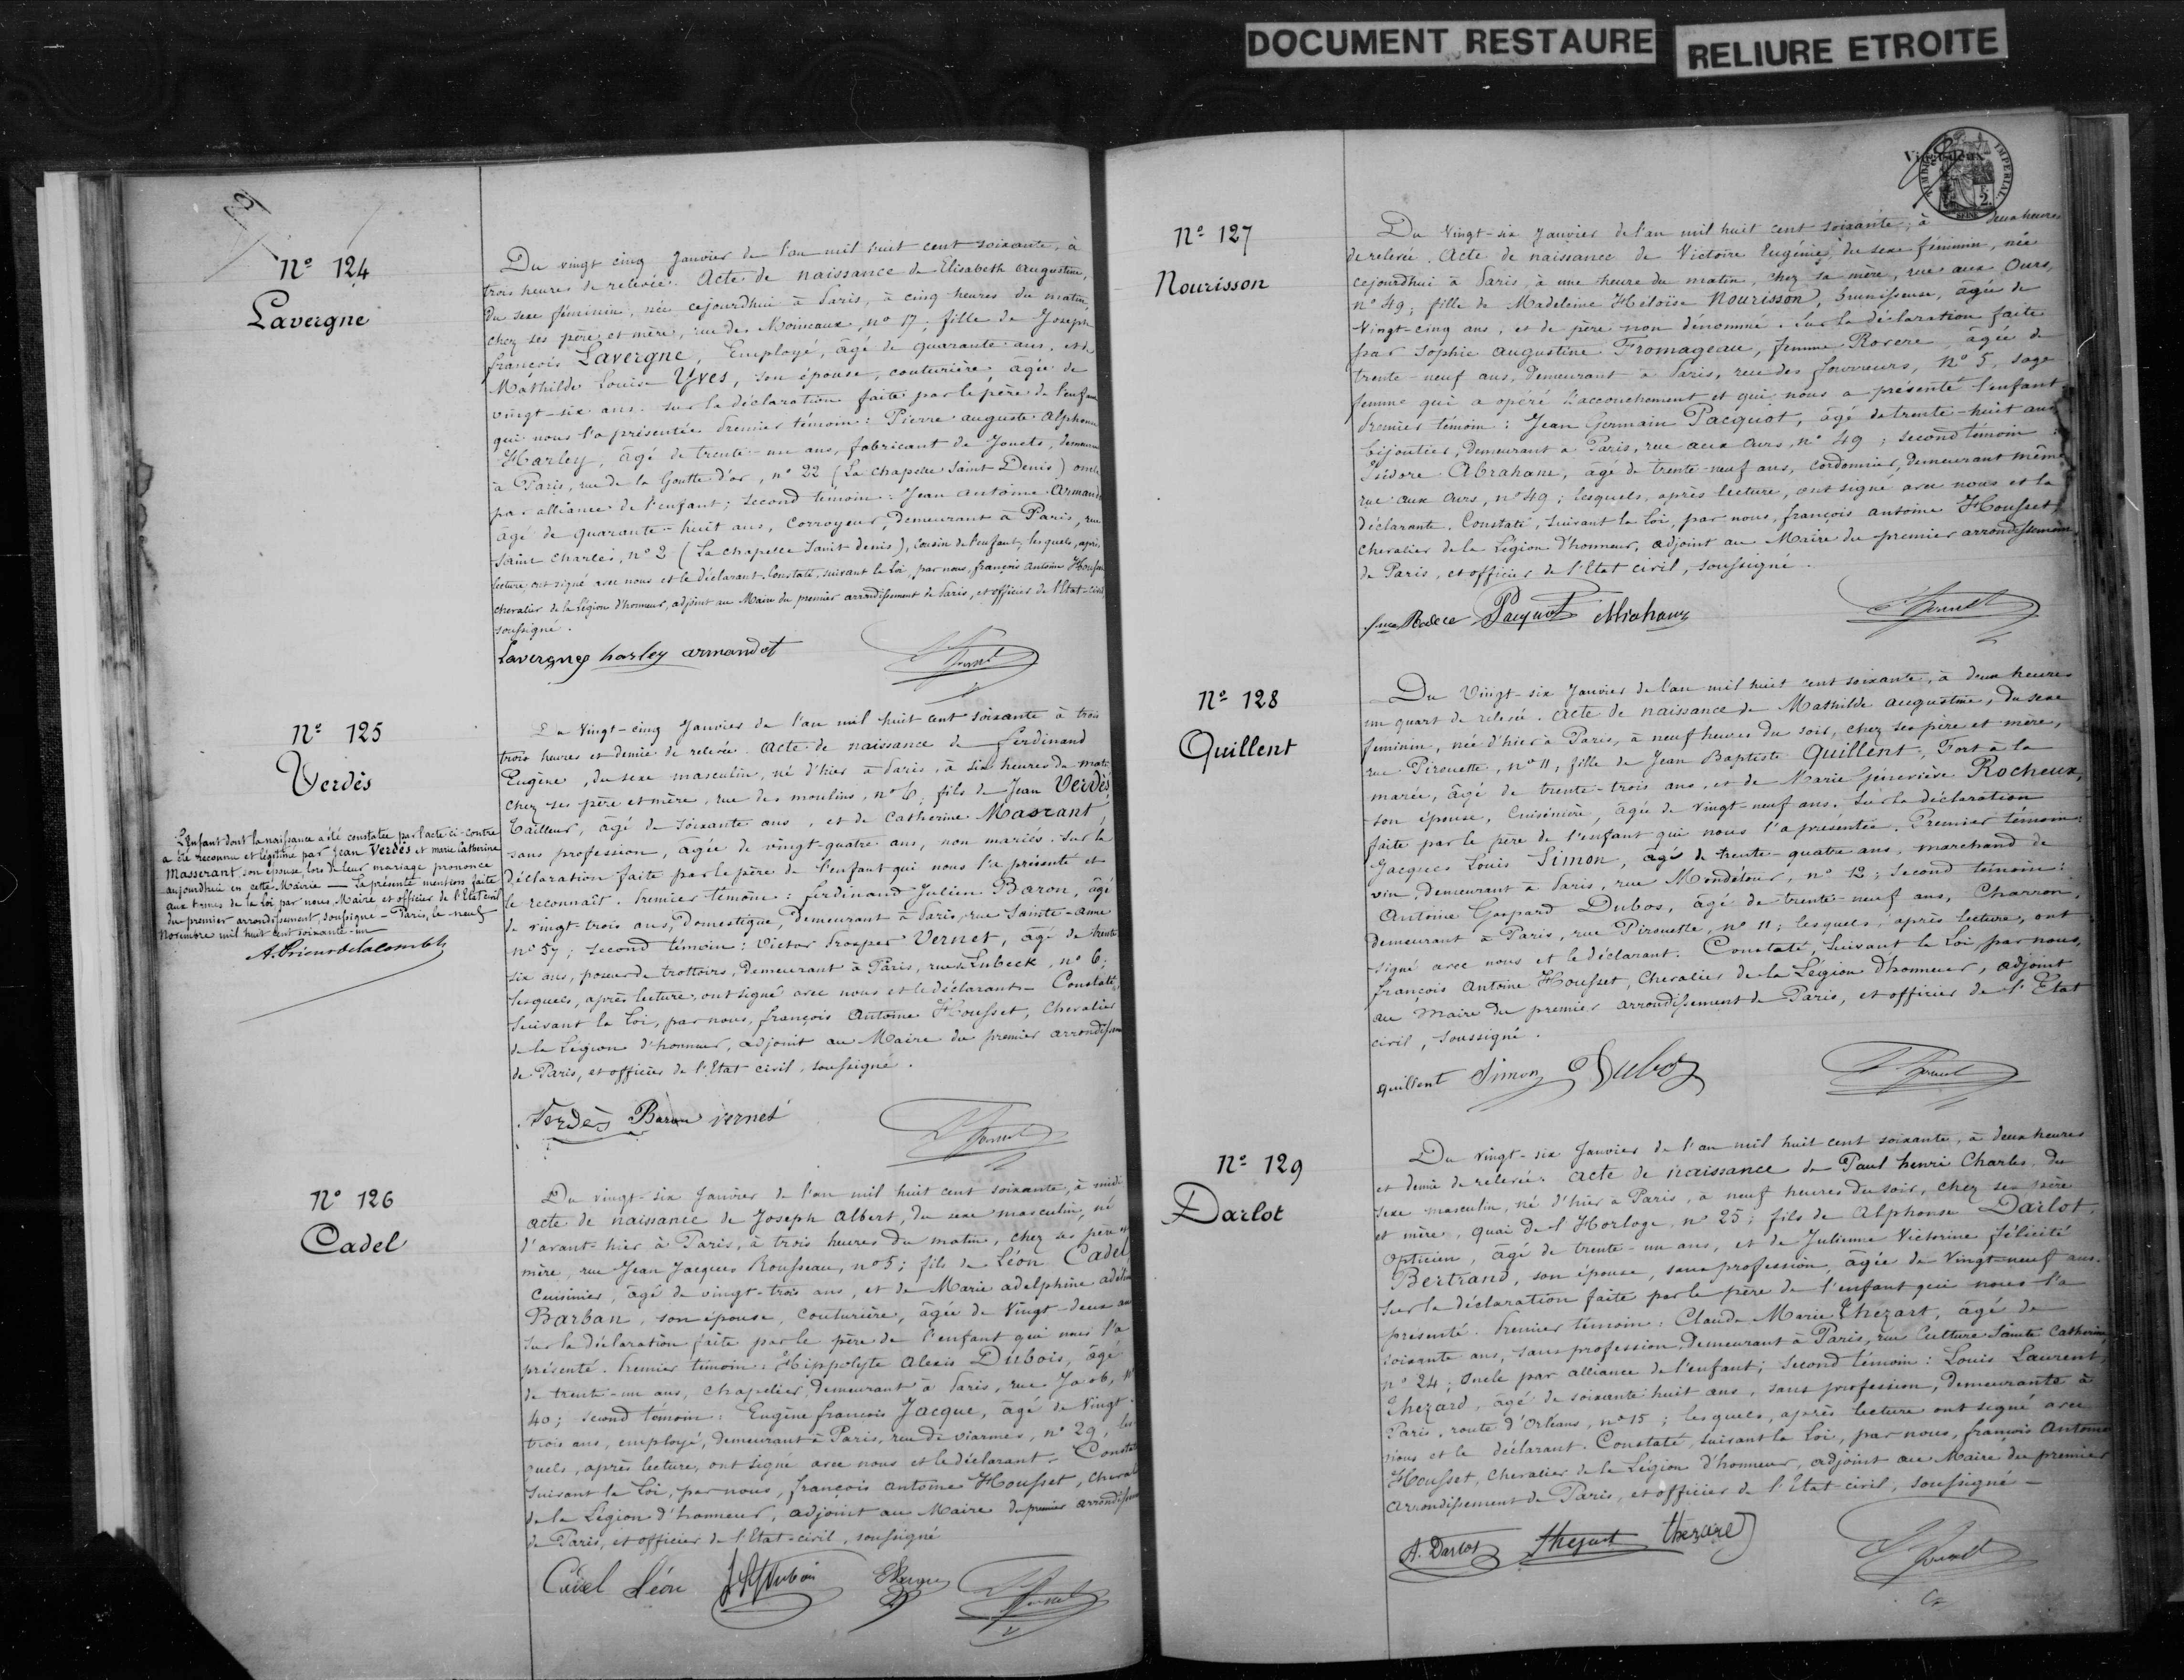 DOCUMENT RESTAURE
RELIURE ETROITE
Nº 124
Lavergne
Du vingt cinq Janvier de l'an mil huit cent soixante, à
trois heures de relevée. Acte de naissance de Elisabeth Augustine,
du sexe féminin, née cejourdhui à Paris, à cinq heures du matin,
chez ses père et mère, rue des Moineaux, nº 17, fille de Joseph
françois Lavergne, Employé, âgé de quarante ans, et de
Mathilde Louise Yves, son épouse, couturière, âgée de
vingt-six ans. Sur la déclaration faite par le père de l'enfant
qui nous l'a présentée. Premier témoin: Pierre auguste Alphonse
Harley, âgé de trente-un ans, fabricant de Jouets, demeurant
à Paris, rue de la Goutte d'or, nº 22 (La chapelle Saint-Denis) oncle
par alliance de l'enfant; second témoin: Jean antoine Armandot
âgé de quarante-huit ans, corroyeur, demeurant à Paris, rue
Saint Charles, nº 2 (La chapelle Saint-denis), cousin de l'enfant, lesquels, après
lecture, ont signé avec nous et le déclarant. Constaté, suivant la Loi, par nous, françois Antoine Housset
chevalier de la Légion d'honneur, adjoint au Maire du premier arrondissement de Paris, et officier de l'Etat-civil
soussigné.
Lavergne harley armandot
Nº 125
Verdès
L'Enfant dont la naissance a été constatée par l'acte ci-contre
a été reconnu et légitimé par Jean Verdès et marie Catherine
Masserant son épouse, lors de leur mariage prononcé
aujourdhui en cette Mairie — La présente mention faite
aux termes de la Loi par nous, Maire et officier de l'Etat civil
du premier arrondissement soussigné - Paris, le neuf
Novembre mil huit cent soixante-un
Du Vingt-cinq Janvier de l'an mil huit cent soixante à trois
trois heures et demie de relevée. Acte de naissance de Ferdinand
Eugène, du sexe masculin, né d'hier à Paris, à dix heures du matin
chez ses père et mère, rue des moulins, nº 6; fils de Jean Verdès,
Tailleur, âgé de soixante ans, et de Catherine Masrant,
sans profession, âgée de vingt-quatre ans, non mariés. Sur la
déclaration faite par le père de l'enfant qui nous l'a présenté et
le reconnaît. Premier témoin: ferdinand Julien Baron, âgé
de vingt-trois ans, Domestique, demeurant à Paris, rue Sainte-anne
nº 57; second témoin: Victor Prosper Vernet, âgé de trente
six ans, poseur de trottoirs, demeurant à Paris, rue de Lubeck, nº 6;
lesquels, après lecture, ont signé avec nous et le déclarant - Constaté,
suivant la Loi, par nous, françois Antoine Housset, Chevalier
de la Légion d'honneur, adjoint au Maire du premier arrondissement
de Paris, et officier de l'Etat civil, soussigné.
Verdès Baron vernet
Nº 126
Cadel
Du vingt-six Janvier de l'an mil huit cent soixante, à midi
acte de naissance de Joseph Albert, du sexe masculin, né
d'avant-hier à Paris, à trois heures du matin, chez ses père et
mère, rue Jean Jacques Rousseau, nº 5; fils de Léon Cadel
Cuisinier, âgé de vingt-trois ans, et de Marie adelphine
Barban, son épouse, couturière, âgée de Vingt-deux ans
Sur la déclaration faite par le père de l'enfant qui nous l'a
présenté. Premier témoin: Hippolyte Alexis Dubois, âgé
de trente-un ans, Chapelier, demeurant à Paris, rue Jacob, nº
40; second témoin: Eugène françois Jacque, âgé de Vingt-
trois ans, employé, demeurant à Paris, rue de viarmes, nº 29, les
quels, après lecture, ont signé avec nous et le déclarant. Constaté
suivant la Loi, par nous, françois antoine Housset, chevalier
de la Légion d'honneur, adjoint au Maire du premier arrondissement
de Paris, et officier de l'Etat-civil, soussigné
Cadel Léon Dubois
Vingt-deux
TIMBRE IMPERIAL
SEINE
Nº 127
Nourisson
Du Vingt-six Janvier de l'an mil huit cent soixante, à deux heures
de relevée. Acte de naissance de Victoire Eugénie, du sexe féminin, née
cejourdhui à Paris, à une heure du matin, chez sa mère, rue aux Ours,
nº 49; fille de Madeleine Héloïse Nourisson, brunisseuse, âgée de
Vingt-cinq ans, et de père non dénommé. Sur la déclaration faite
par Sophie augustine Fromageau, femme Rovere, âgée de
trente-neuf ans, demeurant à Paris, rue des fourreurs, Nº 5, sage
femme qui a opéré l'accouchement et qui nous a présenté l'enfant.
Premier témoin: Jean Germain Pacquot, âgé de trente-huit ans
bijoutier, demeurant à Paris, rue aux Ours, nº 49; second témoin:
Isidore Abrahane, âgé de trente-neuf ans, cordonnier, demeurant même
rue aux Ours, nº 49; lesquels, après lecture, ont signé avec nous et la
déclarante. Constaté, suivant la Loi, par nous, françois antoine Housset,
chevalier de la Légion d'honneur, adjoint au Maire du premier arrondissement
de Paris, et officier de l'Etat civil, soussigné.
Pacquot
Nº 128
Quillent
Du Vingt-six Janvier de l'an mil huit cent soixante, à deux heures
un quart de relevée. Acte de naissance de Mathilde augustine, du sexe
feminin, née d'hier à Paris, à neuf heures du soir, chez ses père et mère,
rue Pirouette, nº 11, fille de Jean Baptiste Quillent, Fort à la
marée, âgé de trente-trois ans, et de Marie Geneviève Rocheux,
son épouse, Cuisinière, âgée de vingt-neuf ans. Sur la déclaration
faite par le père de l'enfant qui nous l'a présentée. Premier témoin:
Jacques Louis Simon, âgé de trente-quatre ans, marchand de
vin, demeurant à Paris, rue Mondétour, nº 12; second témoin:
Antoine Gaspard Dubos, âgé de trente-neuf ans, Charron,
demeurant à Paris, rue Pirouette, nº 11; lesquels, après lecture, ont
signé avec nous et le déclarant. Constaté, suivant la Loi, par nous,
françois Antoine Housset, Chevalier de la Légion d'honneur, adjoint
au Maire du premier arrondissement de Paris, et officier de l'Etat
civil, soussigné.
quillent Simon Dubos
Nº 129
Darlot
Du vingt-six Janvier de l'an mil huit cent soixante, à deux heures
et demie de relevée. Acte de naissance de Paul henri Charles, du
sexe masculin, né d'hier à Paris, à neuf heures du soir, chez ses père
et mère, Quai de l'Horloge, nº 25; fils de Alphonse Darlot,
Opticien, âgé de trente-un ans, et de Julienne Victorine félicité
Bertrand, son épouse, sans profession, âgée de Vingt-neuf ans.
Sur la déclaration faite par le père de l'enfant qui nous l'a
présenté. Premier témoin: Claude Marie Thezart, âgé de
soixante ans, sans profession, demeurant à Paris, rue Culture Sainte Catherine,
nº 24; Oncle par alliance de l'enfant; second témoin: Louis Laurent,
Thezard, âgé de soixante huit ans, sans profession, demeurante à
Paris, route d'Orléans, nº 15; lesquels, après lecture ont signé avec
nous et le déclarant. Constaté, suivant la Loi, par nous, françois Antoine
Housset, Chevalier de la Légion d'honneur, adjoint au Maire du premier
arrondissement de Paris, et officier de l'Etat-civil, soussigné -
A. Darlot thezart thezard